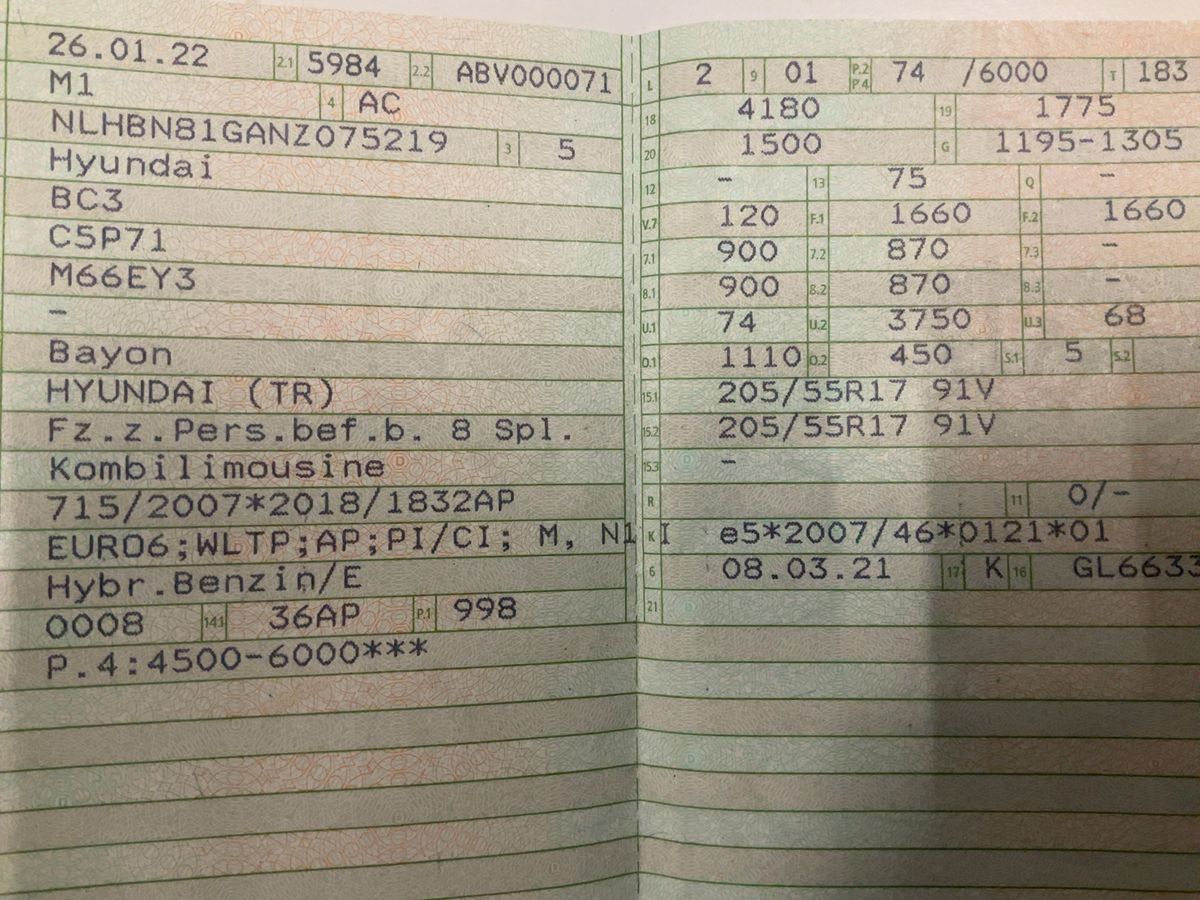 26.01.22 2.1 5984 2.2 ABV000071
M1 4 AC
NLHBN81GANZ075219 3 5
Hyundai
BC3
C5P71
M66EY3
–
Bayon
HYUNDAI (TR)
Fz.z.Pers.bef.b. 8 Spl.
Kombilimousine
715/2007*2018/1832AP
EURO6;WLTP;AP;PI/CI; M, N1 I
Hybr.Benzin/E
0008 14.1 36AP P.1 998
P.4:4500-6000***
L 2 9 01 P.2 P.4 74 /6000 T 183
18 4180 19 1775
20 1500 G 1195-1305
12 – 13 75 Q –
V.7 120 F.1 1660 F.2 1660
7.1 900 7.2 870 7.3 –
8.1 900 8.2 870 8.3 –
U.1 74 U.2 3750 U.3 68
O.1 1110 O.2 450 S.1 5 S.2
15.1 205/55R17 91V
15.2 205/55R17 91V
15.3 –
R 11 0/-
K e5*2007/46*0121*01
6 08.03.21 17 K 16 GL6633
21